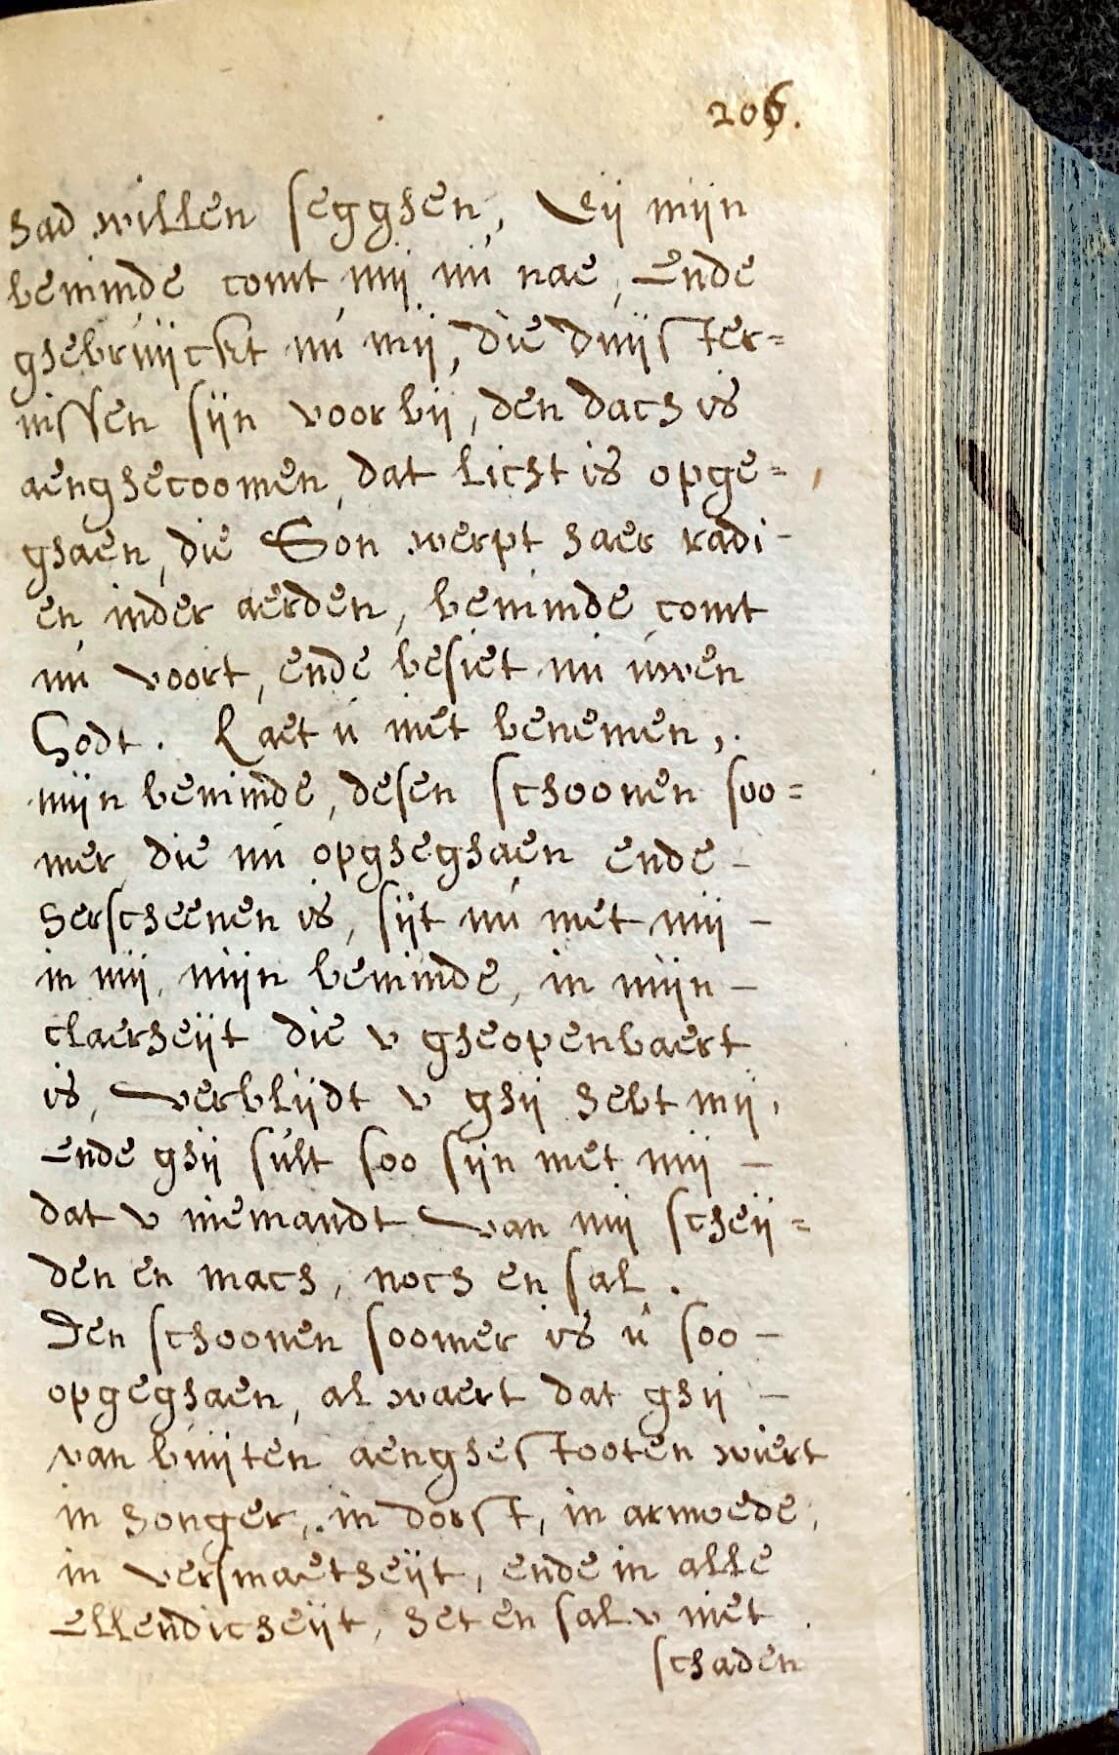 206.
had willen segghen, Eij mijn
beminde comt mij nú nae, Ende
ghebruijckt nú mij, die duijster=
nissen sijn voorbij, den dach is
aenghecoomen, dat licht is opge=
ghaen, die Son werpt haer radi-
en inder aerden, beminde comt
nú voort, ende besiet nú úwen
Godt. Laet ú niet benemen,
mijn beminde, desen schoonen soo=
mer die nú opgheghaen ende-
herscheenen is, sijt nú met mij-
in mij, mijn beminde, in mijn-
claerheijt die v gheopenbaert
is, verblijdt v ghij hebt mij,
Ende ghij súlt soo sijn met mij-
dat v niemandt van mij scheij=
den en mach, noch en sal.
Den schoonen soomer is ú soo-
opgeghaen, al waert dat ghij-
van buijten aenghestooten wiert
in honger, in dorst, in armoede,
in versmaetheijt, ende in alle
Ellendicheijt, het en sal v niet
schaden